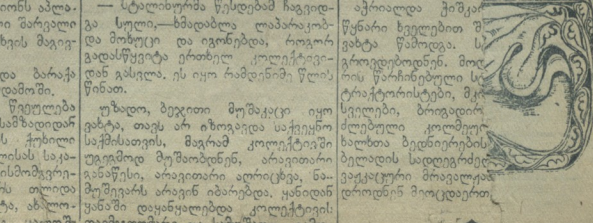 იონს აპლა-
ი შარვალი
ხვის მაგივ-
და ბარაქა
დამოში.
წვეულება
სამზადიდან
ს ქოხილი
ლისას საკა-
ისმომგვრე-
რს თლიდა
— სტალიხურმა წესდებამ ჩაგვიდ-
გა სული,—ხმადაბლა ლაპარაკობ-
და მოხუცი და იგონებდა, როგორ
გადასწყვიტა ერთხელ კოლექტივი-
დან გასვლა. ეს იყო რამდენიმე წლის
წინათ.
უზადო, ბეჯითი მუშაკაცი იყო
ვახტა, თავს არ იზოგავდა საქვეყნო
საქმისათვის, მაგრამ კოლექტივში
უგეგმოდ მუშაობდნენ, არავითარი
განაწესი, არავითარი აღრიცხვა, ნა-
მუშევარს არავინ იბარებდა. ყანიდან
ყანაში დაყანყალებდა კოლექტივის
აჭრიალდა ჭიშკარ
წყნარი ხველებით
ვახტა წამოდგა.
გროვდებოდნენ. მოდ
რის წარჩინებული
ტრაქტორისტები, მკ
სველები, ბრიგადირ
ძლებული კოლმეურ
ხალხთა ბედნიერების
ბელადის სადღეგრძელ
ვაჟკაცური მრავალჟა
დროდნენ მეოცდაერთ